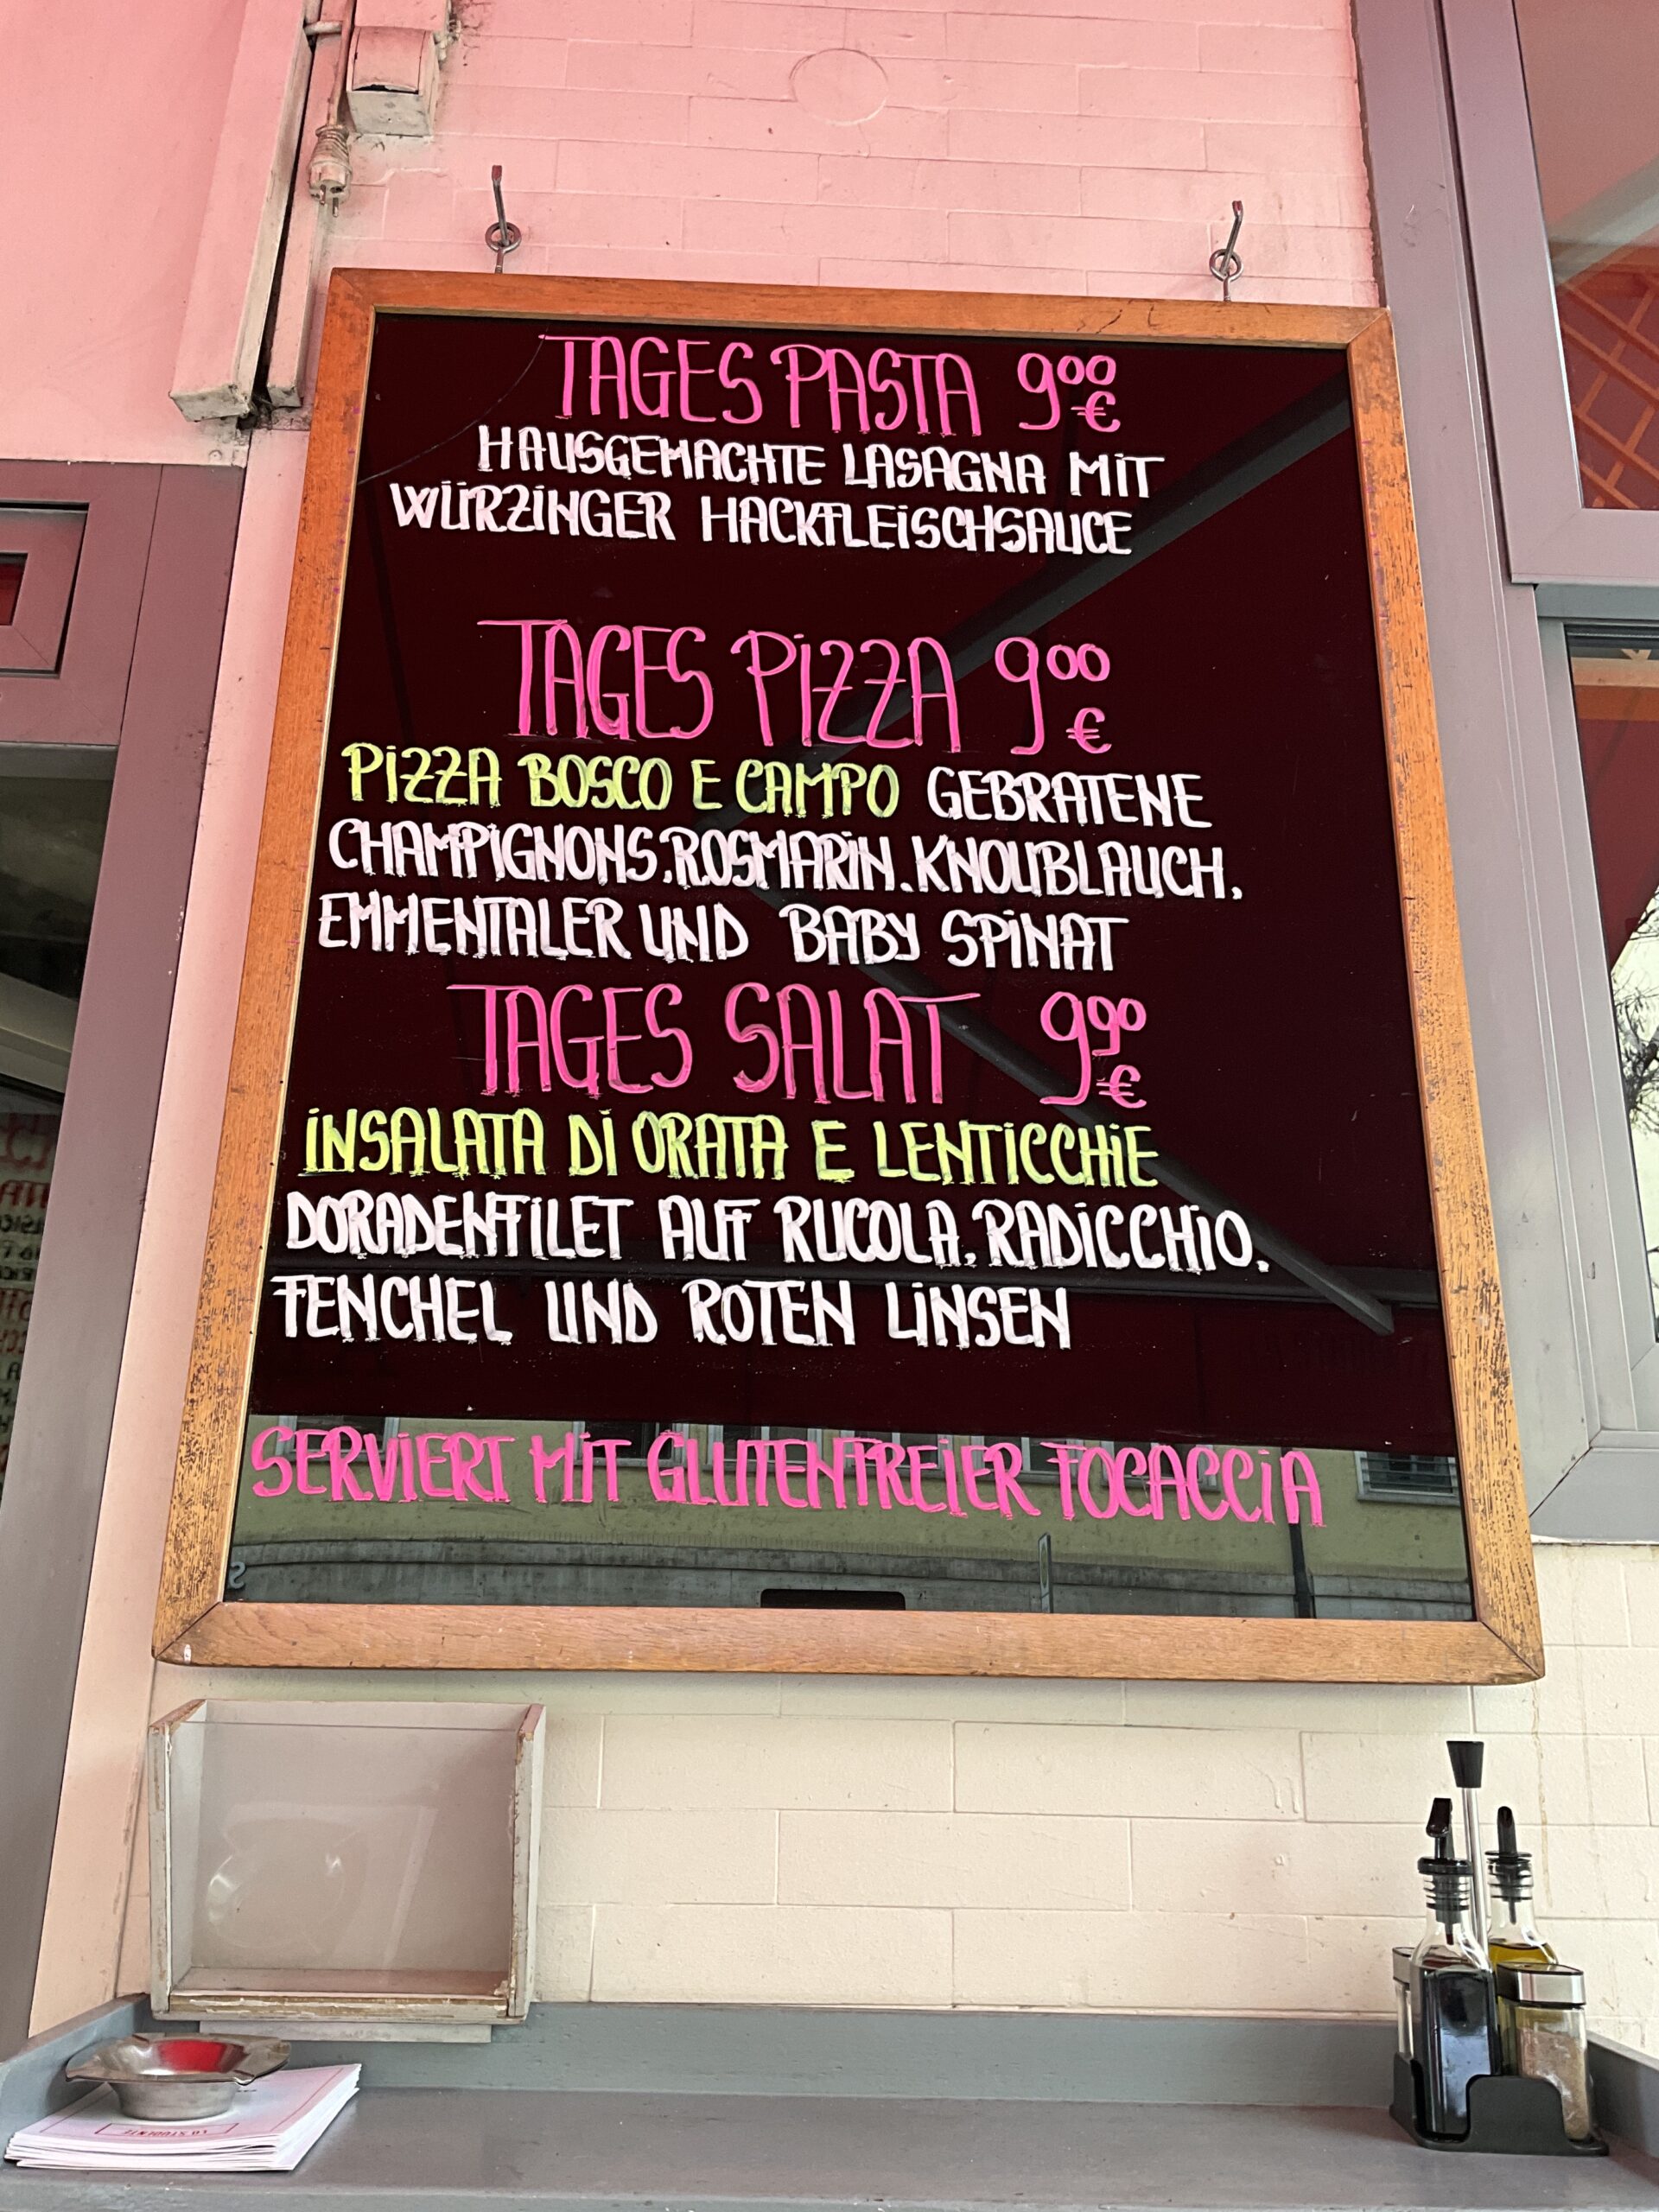 TAGES PASTA 9⁰⁰ €
HAUSGEMACHTE LASAGNA MIT
WÜRZINGER HACKFLEISCHSAUCE
TAGES PIZZA 9⁰⁰ €
PIZZA BOSCO E CAMPO GEBRATENE
CHAMPIGNONS, ROSMARIN, KNOUBLAUCH,
EMMENTALER UND BABY SPINAT
TAGES SALAT 9⁹⁰ €
INSALATA DI ORATA E LENTICCHIE
DORADENFILET AUF RUCOLA, RADICCHIO,
FENCHEL UND ROTEN LINSEN
SERVIERT MIT GLUTENFREIER FOCACCIA
LO STUDENTE